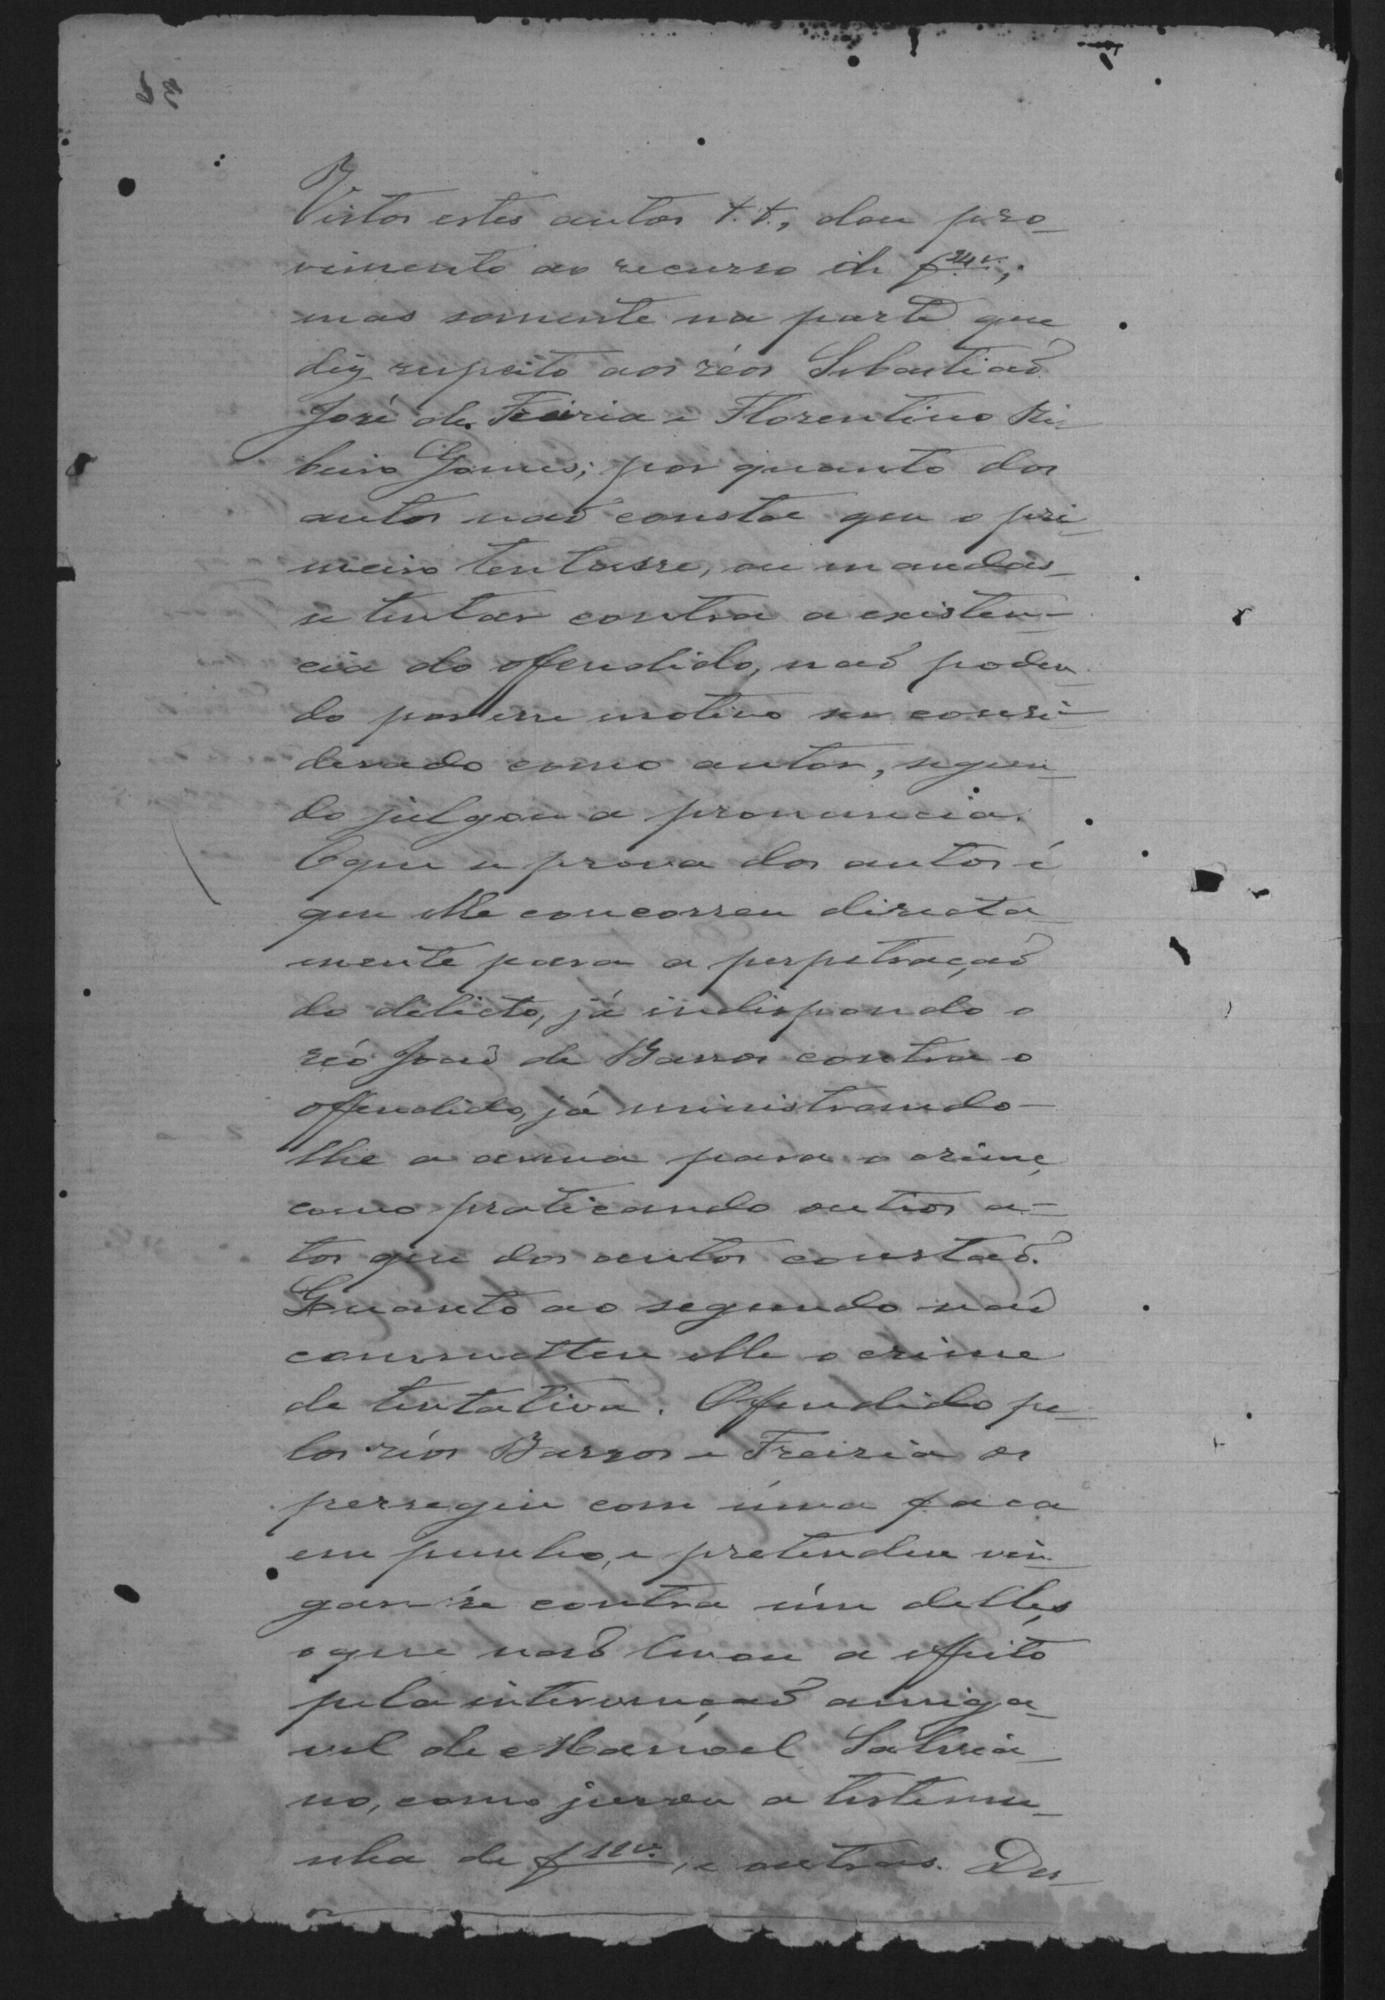 Vistos estes autos &., dou pro-
vimento ao recurso de f 24 v.,
mas somente na parte que
diz respeito aos réos Sebastiaõ
José de Freiria e Florentino Ri-
beiro Gomes; por quanto dos
autos naõ consta que o pri-
meiro tentasse, ou mandas-
se tentar contra a existen-
cia do offendido, naõ poden-
do por esse motivo ser consi-
derado como autor, segun-
do julgou a pronuncia.
O que se prova dos autos é
que elle concorreu directa-
mente para a perpetraçaõ
do delicto, já indispondo o
réo Joaõ de Barros contra o
offendido, já ministrando-
lhe a arma para o crime,
como praticando outros a-
tos que dos autos constaõ.
Quanto ao segundo naõ
commetteu elle o crime
de tentativa. Offendido pe-
los réos Barros e Freiria os
perseguiu com úma faca
em punho, e pretendeu vin-
gar-se contra úm delles,
o que naõ levou a effeito
pela intervençaõ amiga-
vel de Manoel Salvia-
no, como jurou a testemu-
nha de f 11 v., e outras. Des-